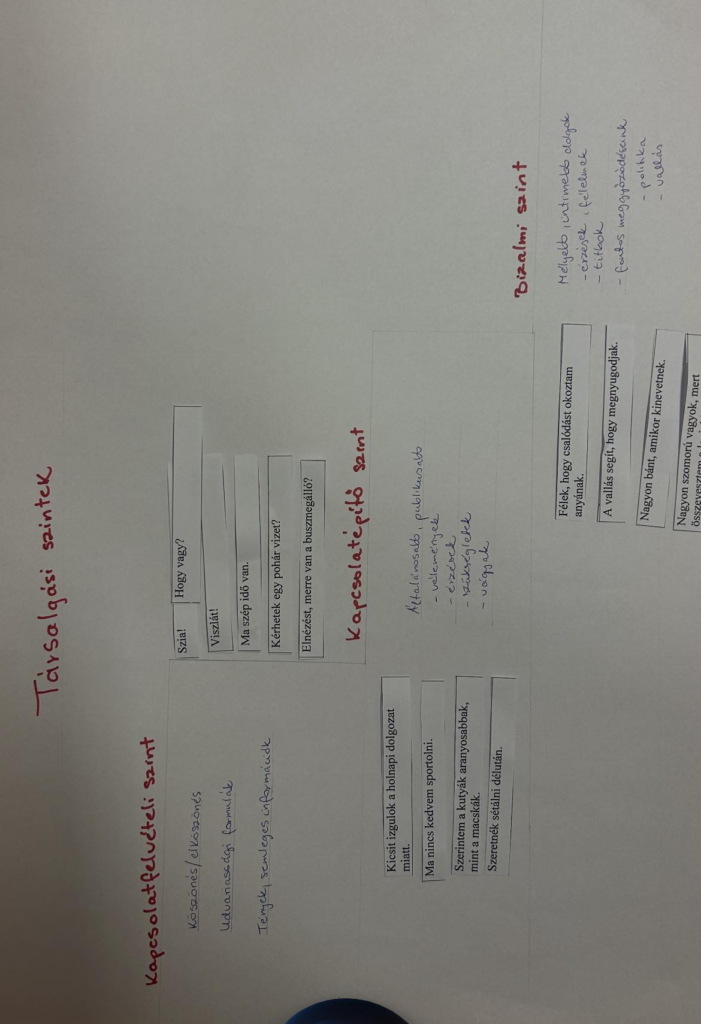 Társalgási szintek
Kapcsolatfelvételi szint
Köszönés/elköszönés
Udvariassági formulák
Tények, semleges információk
Szia!
Hogy vagy?
Viszlát!
Ma szép idő van.
Kérhetek egy pohár vizet?
Elnézést, merre van a buszmegálló?
Kapcsolatépítő szint
Kicsit izgulok a holnapi dolgozat
miatt.
Ma nincs kedvem sportolni.
Szerintem a kutyák aranyosabbak,
mint a macskák.
Szeretnék sétálni délután.
Általánosabb, publikusabb
- vélemények
- érzések
- szükségletek
- vágyak
Bizalmi szint
Félek, hogy csalódást okoztam
anyának.
A vallás segít, hogy megnyugodjak.
Nagyon bánt, amikor kinevetnek.
Nagyon szomorú vagyok, mert
Mélyebb, intimebb dolgok
- érzések, félelmek
- titkok
- fontos meggyőződéseink
- politika
- vallás